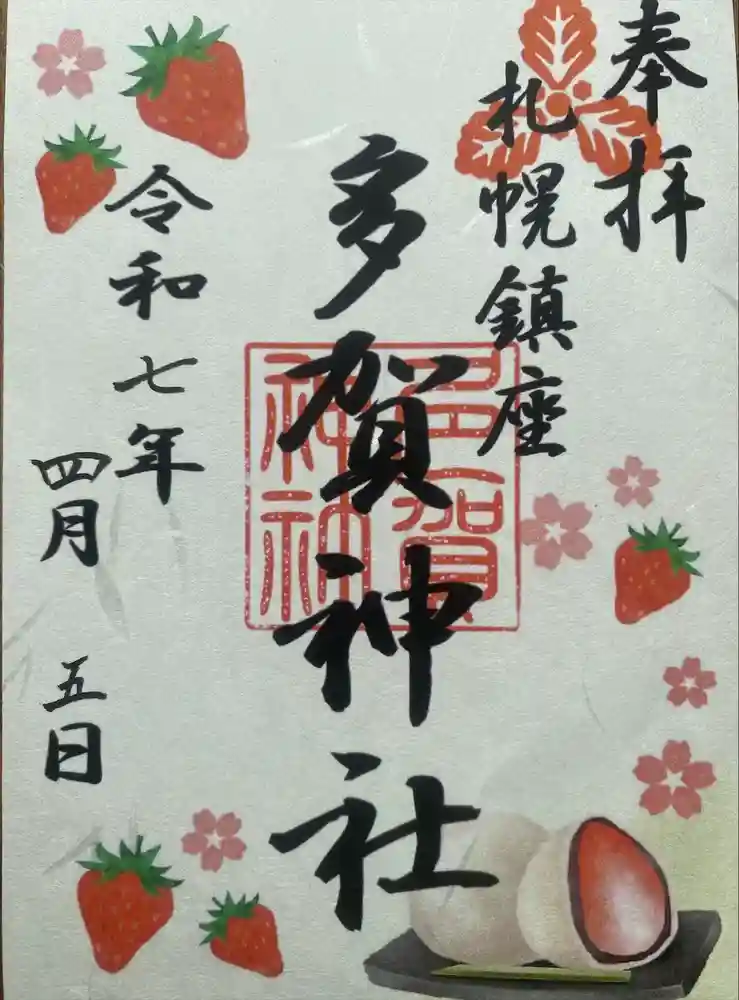 奉拝
札幌鎮座
多賀神社
多賀
神社
令和七年
四月五日